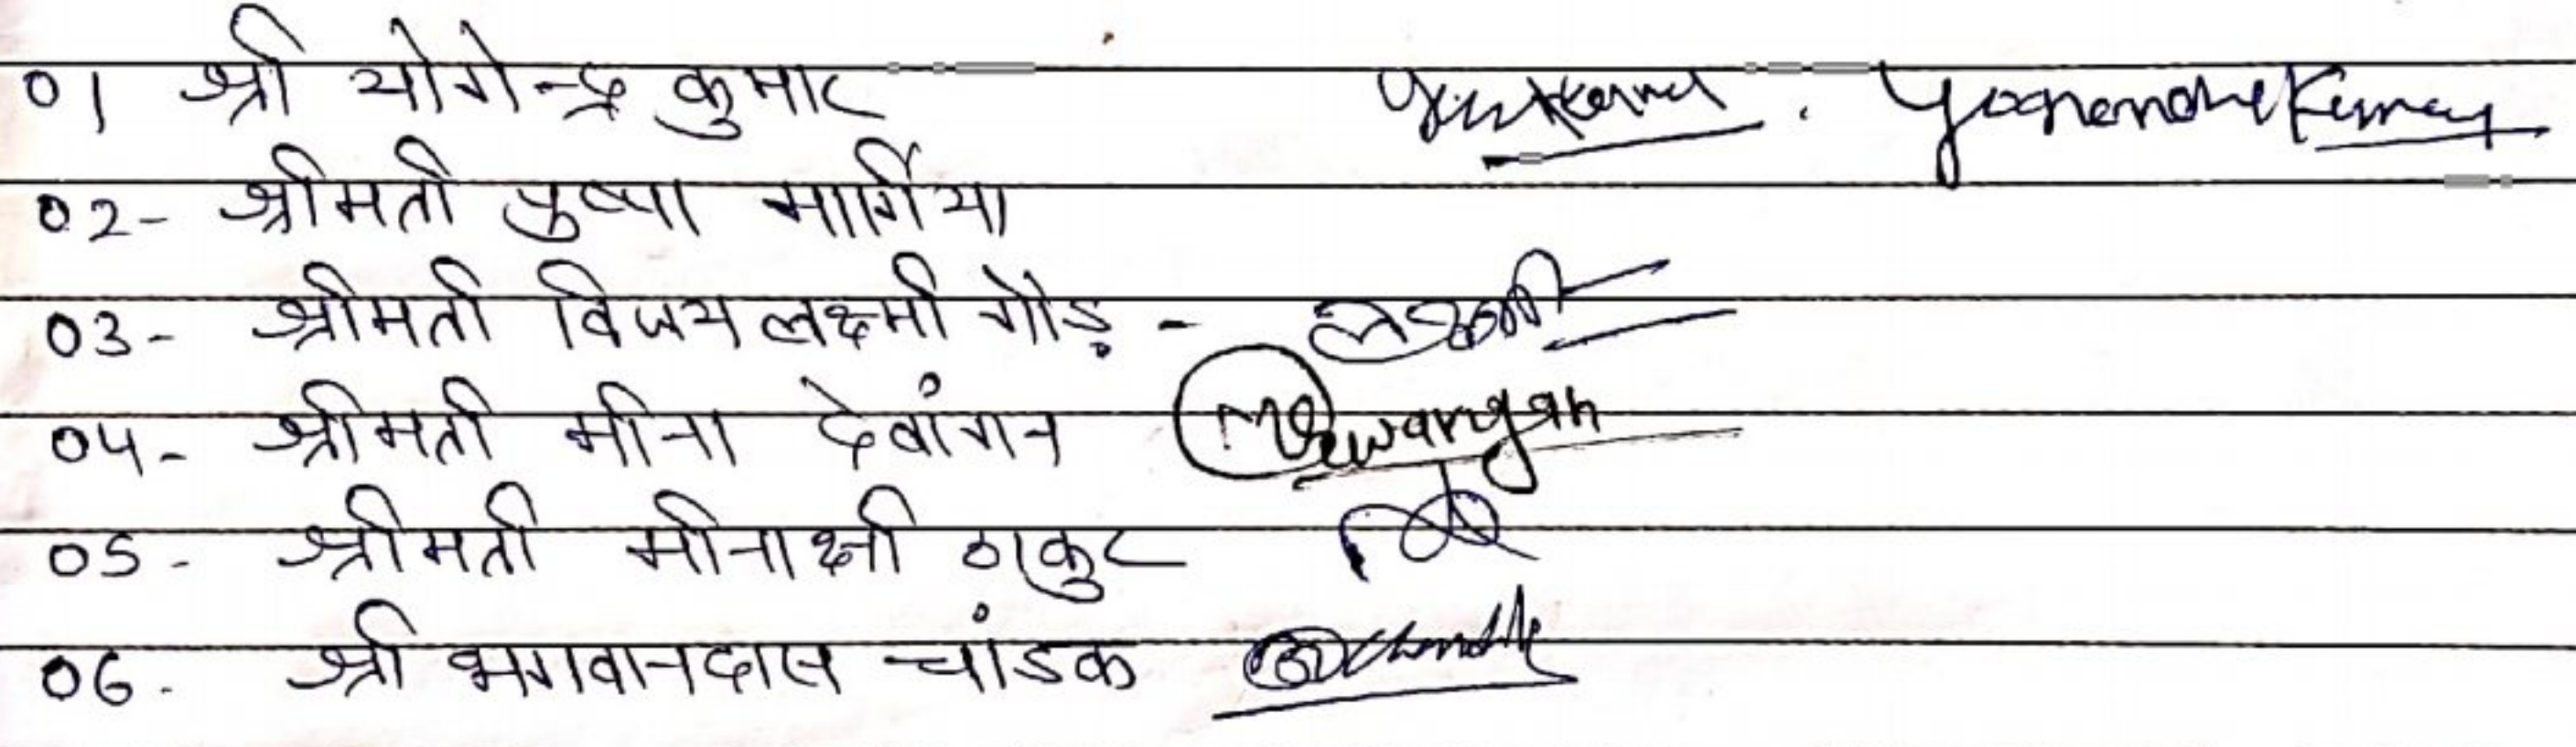 01 श्री योगेन्द्र कुमार Yogendra Kumar
02- श्रीमती पुष्पा मार्गिया
03- श्रीमती विजय लक्ष्मी गोंड़ -
04- श्रीमती मीना देवांगन MDewangan
05- श्रीमती मीनाक्षी ठाकुर
06- श्री भगवानदास चांडक